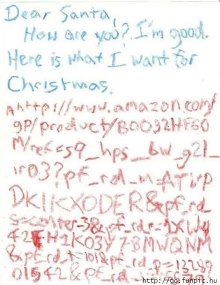 Dear Santa,
How are you? I'm good.
Here is what I want for
Christmas.
http://www.amazon.com/
gp/product/B0032HF60
M/ref=s9_hps_bw_g21_
ir03?pf_rd_m=ATVP
DKIKX0DER&pf_rd_
s=center-3&pf_rd_r=
&pf_rd_t=101&pf_rd_p=
&pf_rd_i=
http://oosfunpic.hu